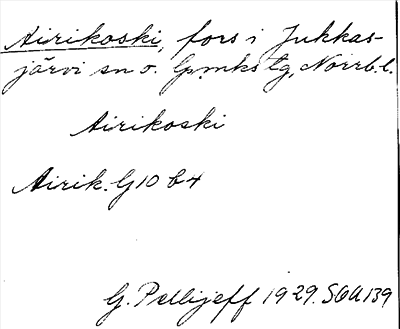 Airikoski, fors i Jukkas-
järvi sn o. Lpmks tg, Norrb. l.
Airikoski
Airik. G 10 b 4
G. Pellijeff 1929. SOA 139